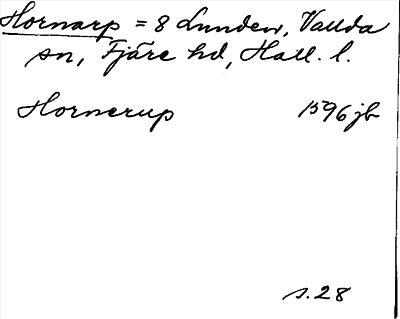 Hornarp = 8 Lunden, Vallda
sn, Fjäre hd, Hall. l.
Hornerup 1596 jb
s. 28